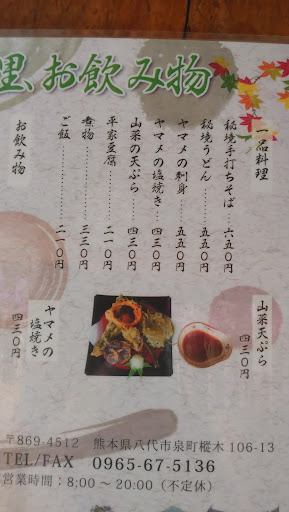 理、お飲み物
一品料理
秘境手打ちそば…六五〇円
秘境うどん………五五〇円
ヤマメの刺身……五五〇円
ヤマメの塩焼き…四三〇円
山菜の天ぷら……四三〇円
平家豆腐…………二一〇円
煮物………………三三〇円
ご飯………………二一〇円
お飲み物
山菜天ぷら
四三〇円
ヤマメの
塩焼き
四三〇円
〒869-4512 熊本県八代市泉町樅木106-13
TEL/FAX 0965-67-5136
営業時間：8:00～20:00（不定休）